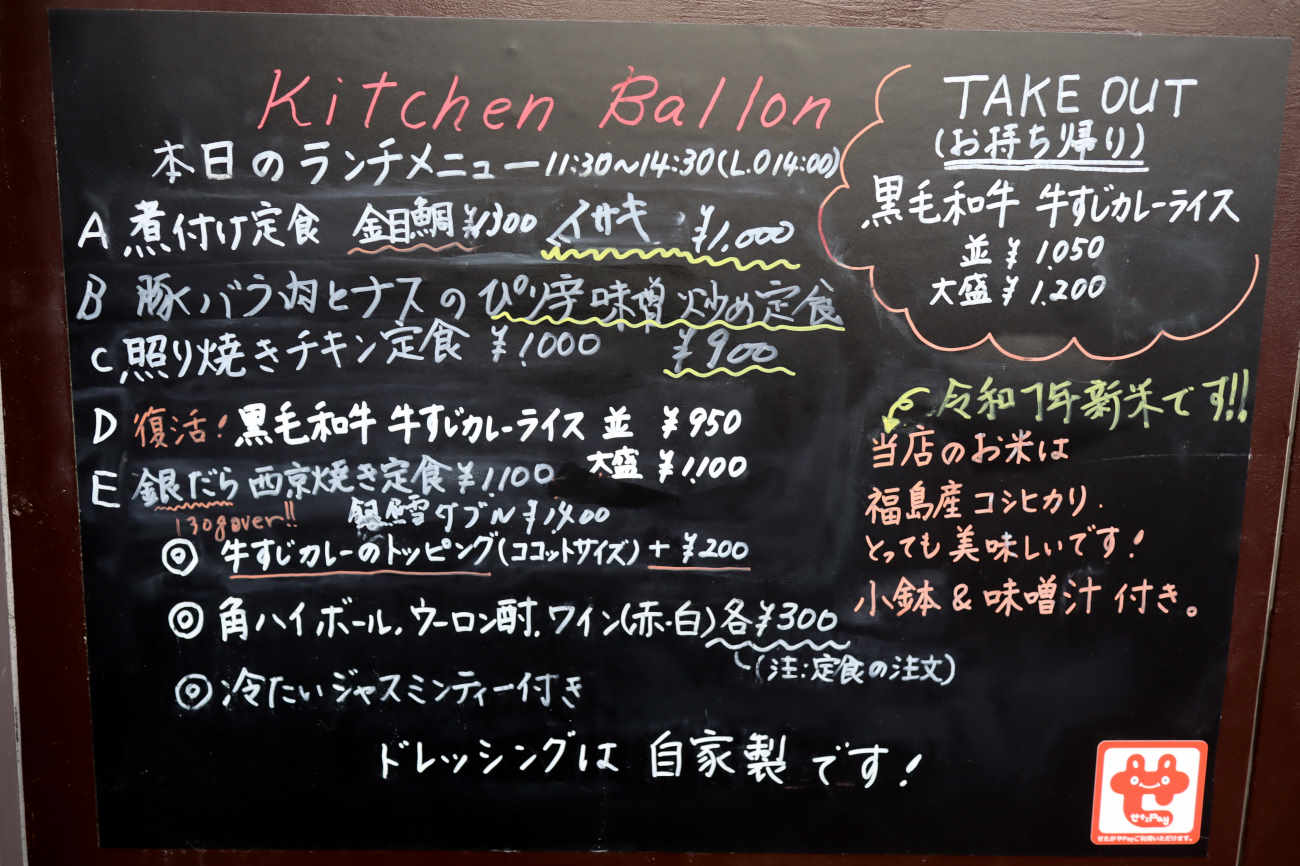 Kitchen Ballon
本日のランチメニュー 11:30〜14:30(L.O14:00)
A 煮付け定食 金目鯛¥1300 イサキ ¥1.000
B 豚バラ肉とナスのぴり辛味噌炒め定食
C 照り焼きチキン定食 ¥1000 ¥900
D 復活! 黒毛和牛 牛すじカレーライス 並 ¥950
大盛 ¥1,100
E 銀だら西京焼き定食¥1,100
130gover!! 銀鱈ダブル ¥1,400
◎ 牛すじカレーのトッピング(ココットサイズ)+¥200
◎ 角ハイボール,ウーロン酎,ワイン(赤・白)各¥300
(注:定食の注文)
◎ 冷たいジャスミンティー付き
ドレッシングは 自家製です!
TAKE OUT
(お持ち帰り)
黒毛和牛 牛すじカレーライス
並 ¥1050
大盛 ¥1,200
令和7年新米です!!
当店のお米は
福島産コシヒカリ.
とっても美味しいです!
小鉢&味噌汁付き。
せたPay
せたがやPayご利用いただけます。